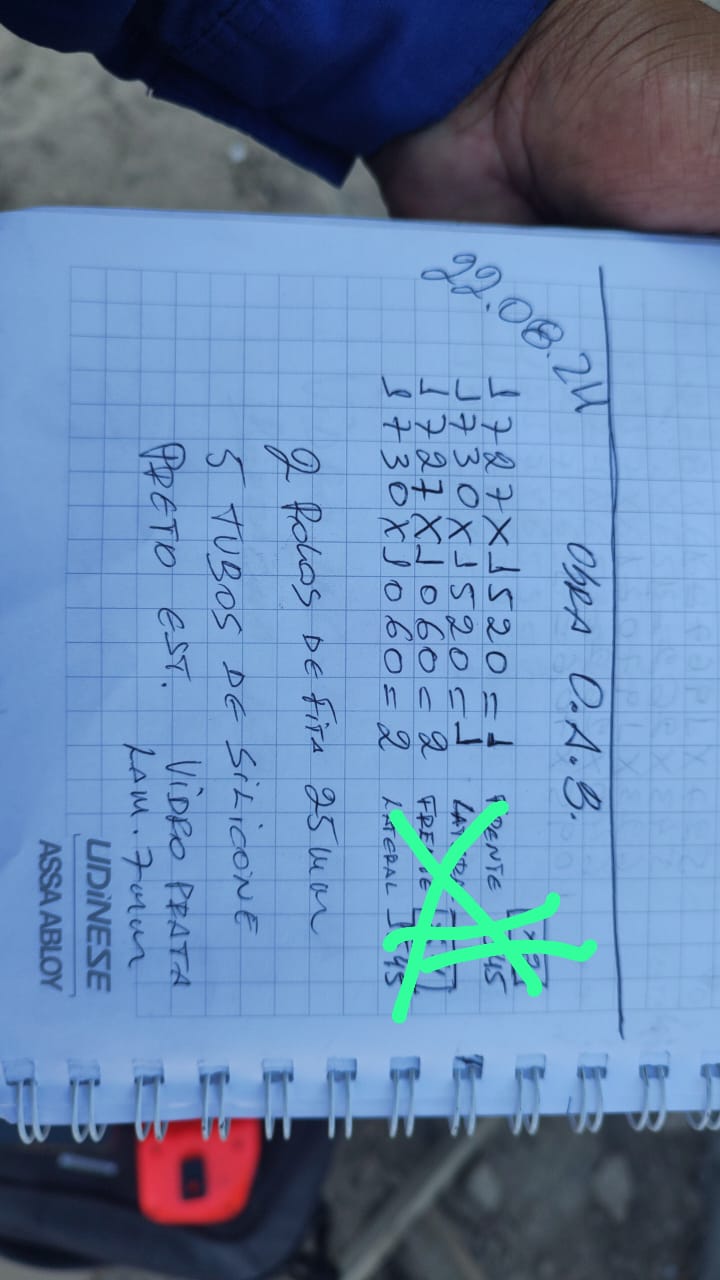 22.08.24
OBRA O.A.B.
1727X1520=1 FRENTE 45
1730X1520=1
1727X1060=2
1730X1060=2 LATERAL 45
2 ROLOS DE FITA 25mm
5 TUBOS DE SILICONE
PRETO EST. VIDRO PRATA
LAM. 7mm
UDINESE
ASSA ABLOY